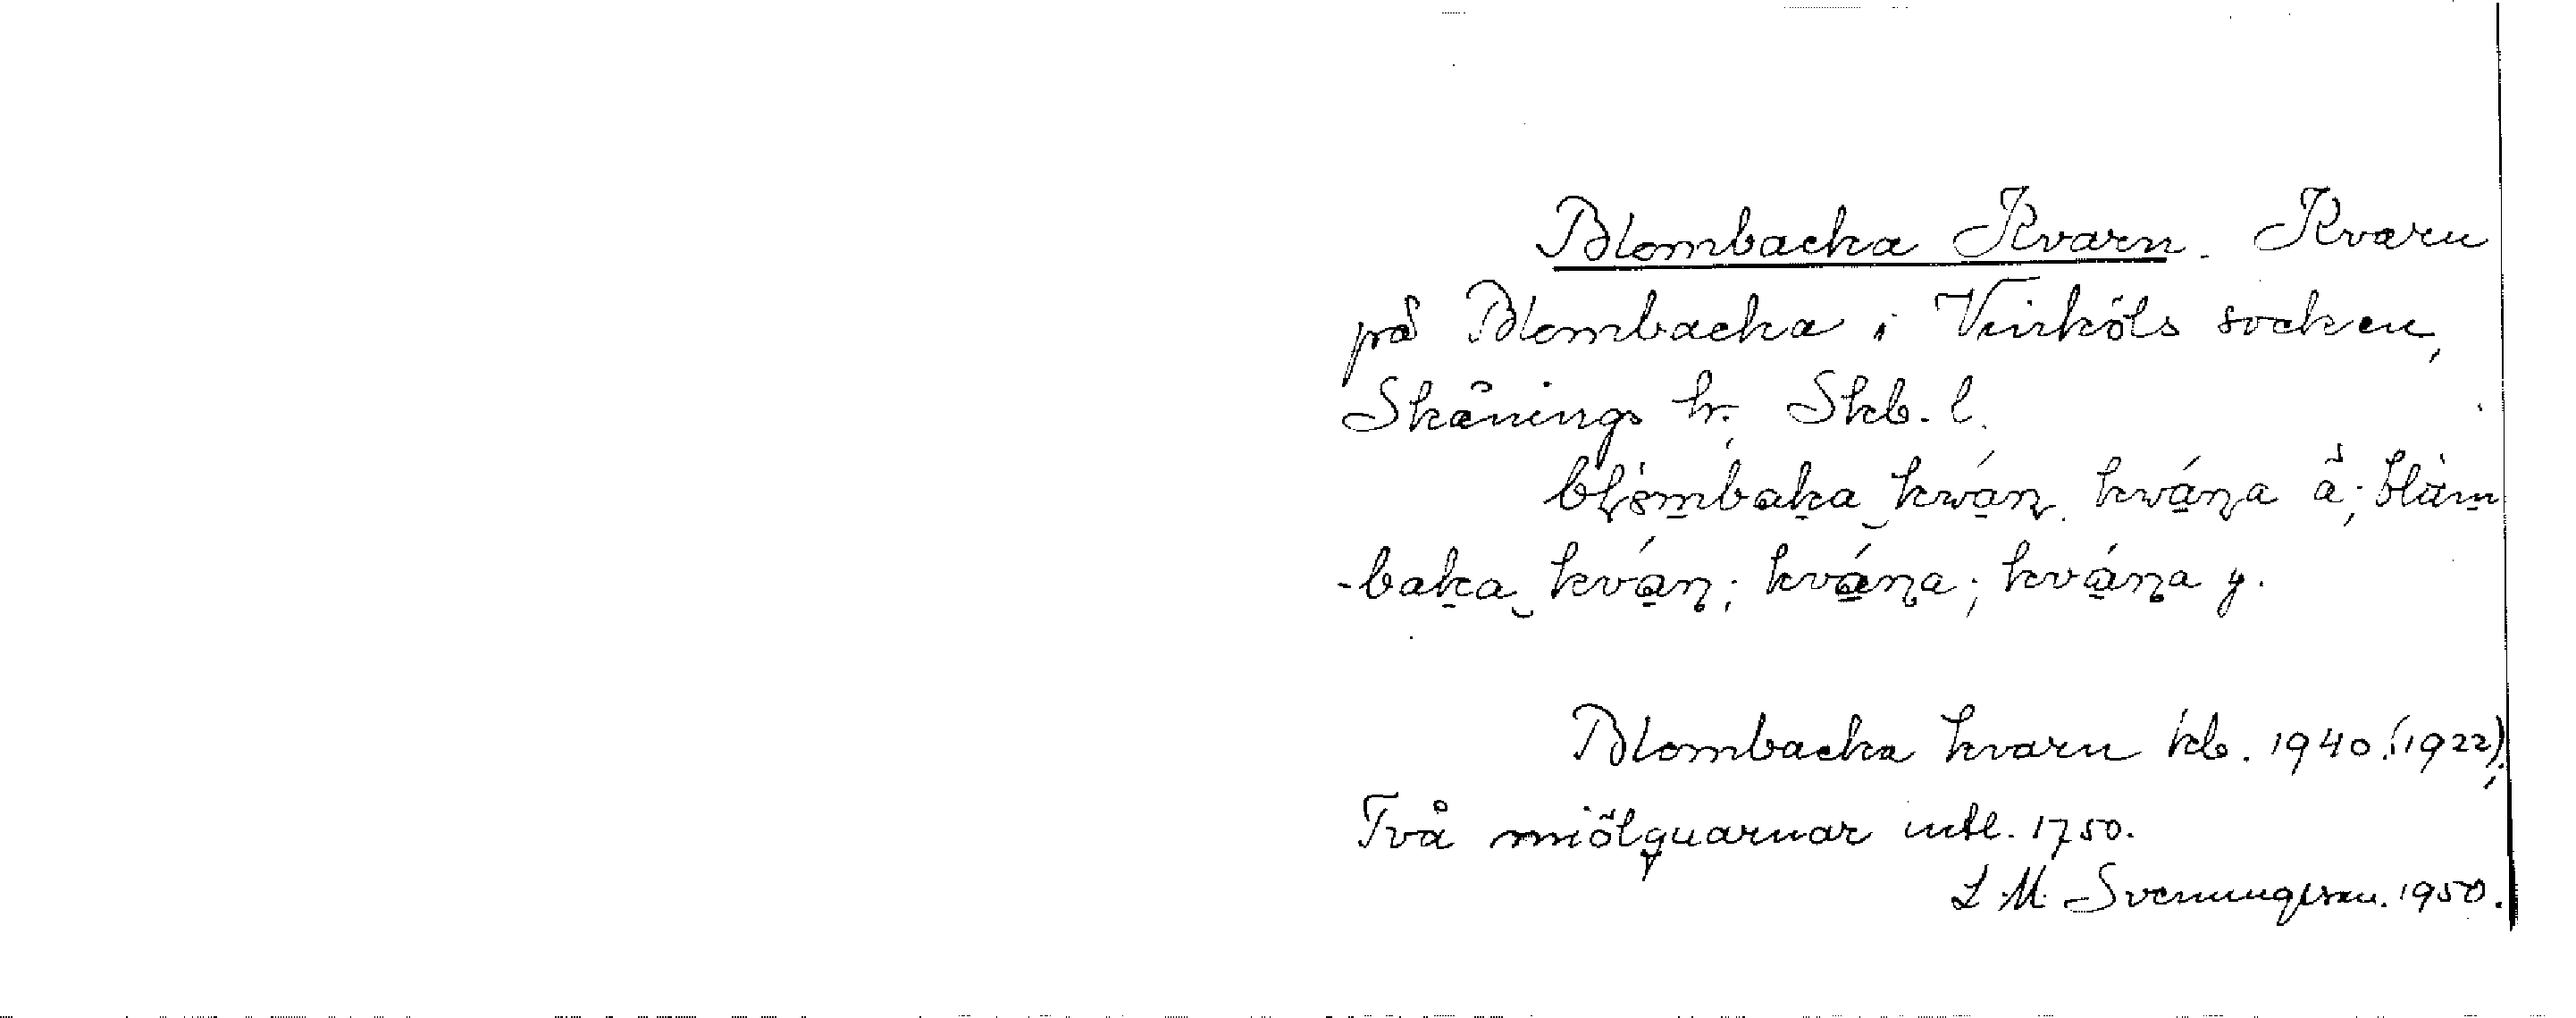 Blombacka Kvarn. Kvarn
på Blombacka i Vinköls socken,
Skånings hr. Skb. l.
kwán. kwána ä;
-baka kván; kvána; kvána y.
Blombacka kvarn kb. 1940 (1922);
Två miölquarnar mtl. 1750.
L M Svenungsson. 1950.